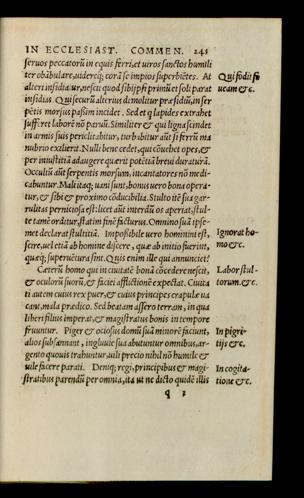 IN ECCLESIAST. COMMEN. 245
seruos peccatorũ in equis ferri, et uiros sanctos humili
ter obãbulare, uidercq; corã se impios superbiẽtes. At
alteri insidiatur, nescit quod sibijpsi primũ et soli parat
insidias. Qui securũ alterius demolitur præsidiũ, in ser
pẽtis morsus passim incidet. Sed et q lapides extrahet
sufferet laborẽ nõ paruũ. Similiter & qui ligna scindet
in armis suis periclitabitur, turbabitur aũt si ferrũ ma
nubrio exilierit. Nulli bene cedet, qui cõuehet opes, &
per iniustitiã adaugere quærit potẽtiã breui duraturã.
Occultũ aũt serpentis morsum, incantatores nõ medi-
cabuntur. Mali itaq; uani sunt, bonus uero bona opera-
tur, & sibi & proximo cõducibilia. Stulto itẽ sua gar-
rulitas perniciosa est: licet aũt interdũ os aperiat, stul-
te tamẽ orditur, statim finẽ facturus. Omnino suã ipse-
met declarat stultitiã. Impoßibile uero homini est,
scire, uel etiã ab homine discere, quæ ab initio fuerint,
quæq; superuẽtura sint. Quis enim ille qui annunciet?
Cæterũ homo qui in ciuitatẽ bonã cõcedere nescit,
& oculorũ suorũ, & faciei afflictionẽ expectat. Ciuita
ti autem cuius rex puer, & cuius principes crapulæ ua
cant, mala prædico. Sed beatam assero terram, in qua
liberi filius imperat, & magistratus bonis in tempore
fruuntur. Piger & ociosus domũ suã minorẽ faciunt,
alios subsannant, ingluuie sua abutuntur omnibus, ar-
gento quouis trahuntur, uili precio nihil nõ humile &
uile facere parati. Deniq; regi, principibus & magi-
stratibus parendũ per omnia, ita ut ne dicto quidẽ illis
q
Qui fodit fo
ueam &c.
Ignorat ho-
mo &c.
Labor stul-
torum &c.
In pigri-
tijs &c.
In cogita-
tione &c.